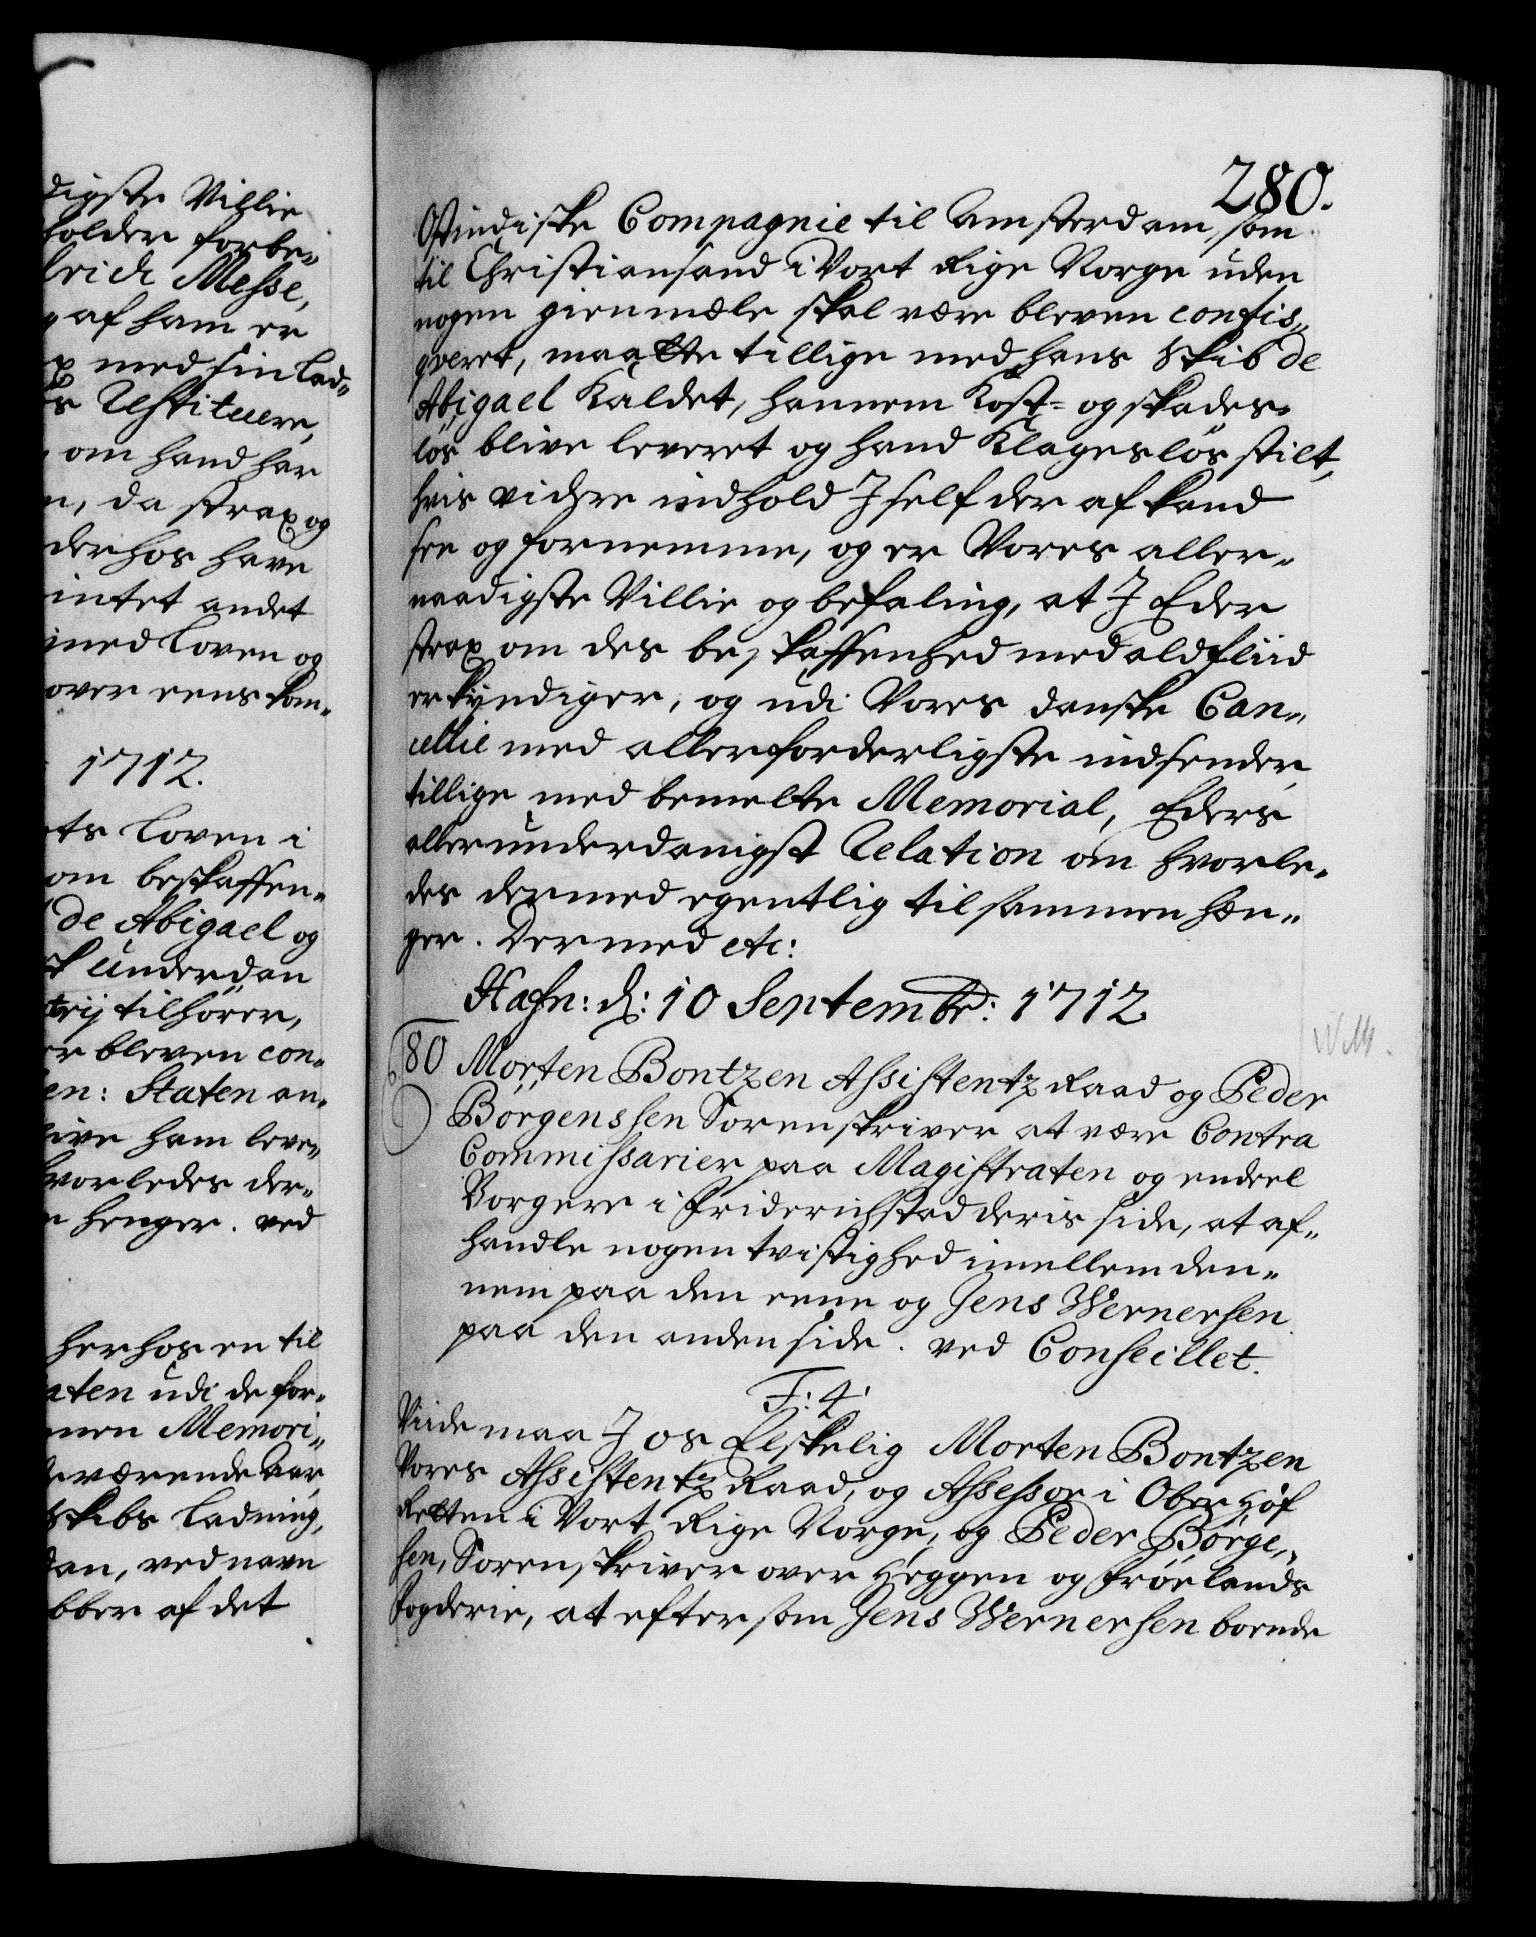 digste Villie
holder forbe-
lrich Messe,
af ham er
med sin lad-
Restituere,
om hand har
n, da strax og
derhos have
intet andet
med Loven og
over eens kom-
1712.
ts Loven i
om beskaffen-
de Abigael og
underdan
trij tilhører,
er bleven con-
en: Staten an-
live ham leve-
hvorledes der-
n henger. ved
herhos en til
aten udi de for-
men Memori-
værende Aar
Skibs Ladning,
dan, ved navn
bber af det
280.
Ostindiske Compagnie til Amsterdam, som
til Christiansand i Vort Rige Norge uden
nogen gienmæle skal være bleven confis-
qveret, maatte tillige med hans Skib de
Abigael Kaldet, hannem Kost- og skades-
løs blive leveret og hand Klagesløs stilt,
hvis videre indhold J self der af kand
see og fornemme, og er Vores aller-
naadigste Villie og befaling, at J Eder
strax om des beskaffenhed med ald fliid
erkyndiger, og udi Vores danske Can-
cellie med allerforderligste indsender,
tillige med bemelte Memorial, Eders
allerunderdanigst Relation om hvorle-
des dermed egentlig tilsammen hen-
ger. Dermed etc:
Hafn: d: 10 Septembr: 1712
80 Morten Bontzen Assistentz Raad og Peder
Børgenssen Sorenskriver at være Contra
Commissarier paa Magistraten og endeel
Borgere i Friderichstad deris side, at af-
handle nogen tvistighed imellem den-
nem paa den eene og Jens Wernersen
paa den anden side. ved Conseillet.
F: 4
Viide maa J os Elskelig Morten Bontzen
Vores Assistentz Raad, og Assessor i Ober Hof
Retten i Vort Rige Norge, og Peder Børge-
sen, Sorenskriver over Heggen og Frølands
Fogderie, at eftersom Jens Wernersen boende